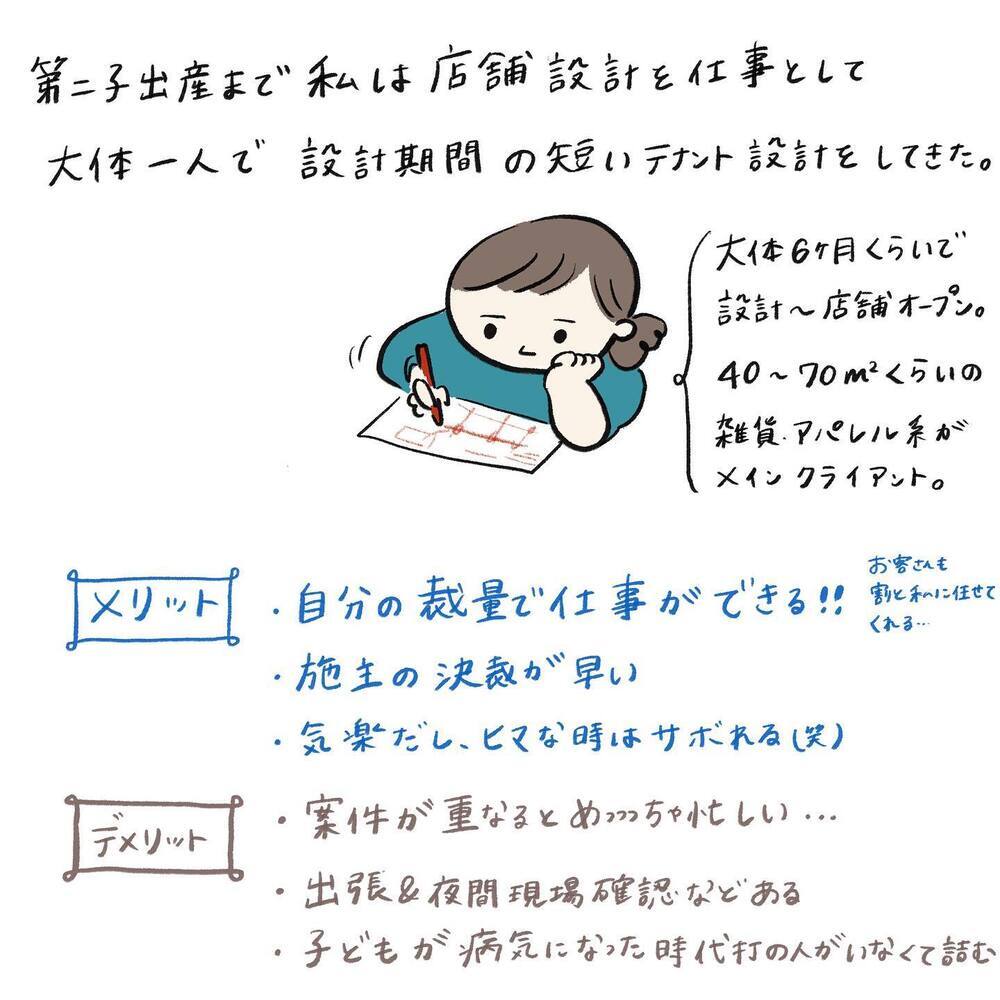 第二子出産まで私は店舗設計を仕事として
大体一人で 設計期間の短いテナント設計をしてきた。
大体6ヶ月くらいで
設計〜店舗オープン。
40〜70m²くらいの
雑貨・アパレル系が
メインクライアント。
メリット
・自分の裁量で仕事ができる!!
お客さんも
割と私に任せて
くれる…
・施主の決裁が早い
・気楽だし、ヒマな時はサボれる(笑)
デメリット
・案件が重なるとめっっっちゃ忙しい…
・出張&夜間現場確認などある
・子どもが病気になった時代打の人がいなくて詰む